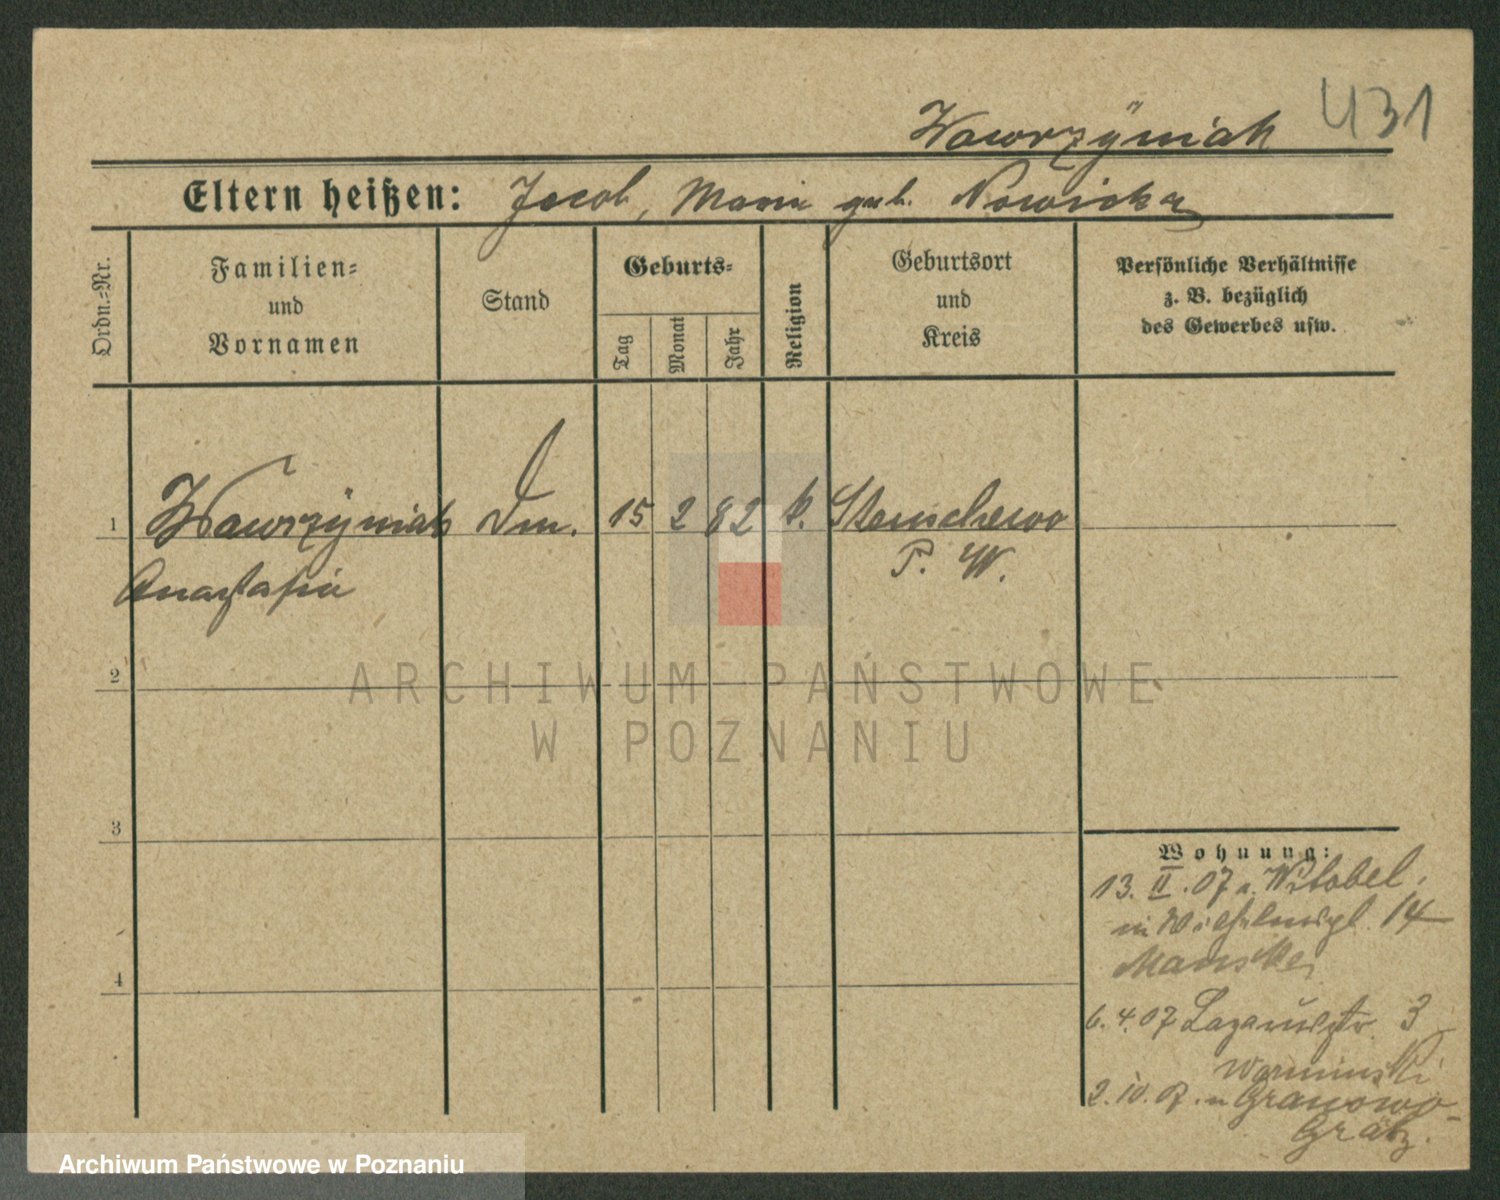 431
Wawrzÿniak
Eltern heißen: Jacob, Marie geb. Nowicka
Ordn.-Nr.
Familien-
und
Vornamen
Stand
Geburts-
Tag
Monat
Jahr
Religion
Geburtsort
und
Kreis
Persönliche Verhältnisse
z. B. bezüglich
des Gewerbes usw.
1 Wawrzÿniak Dm. 15 2 82 k. Stenschewo
Anastasia P. W.
2
3
4
Wohnung:
13. II. 07 v. Witobel.
in Wilhelmspl. 14
Manske
6. 4. 07 Lazarusstr. 3
Warminski
2. 10. 07. n Granowo-
Grätz.
ARCHIWUM PAŃSTWOWE
W POZNANIU
Archiwum Państwowe w Poznaniu